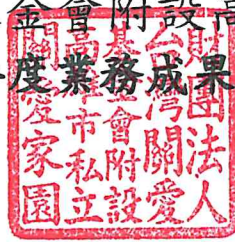 金會附設高
度業務成果
財團法人
台灣關愛
基金會附設
高雄市私立
關愛家園